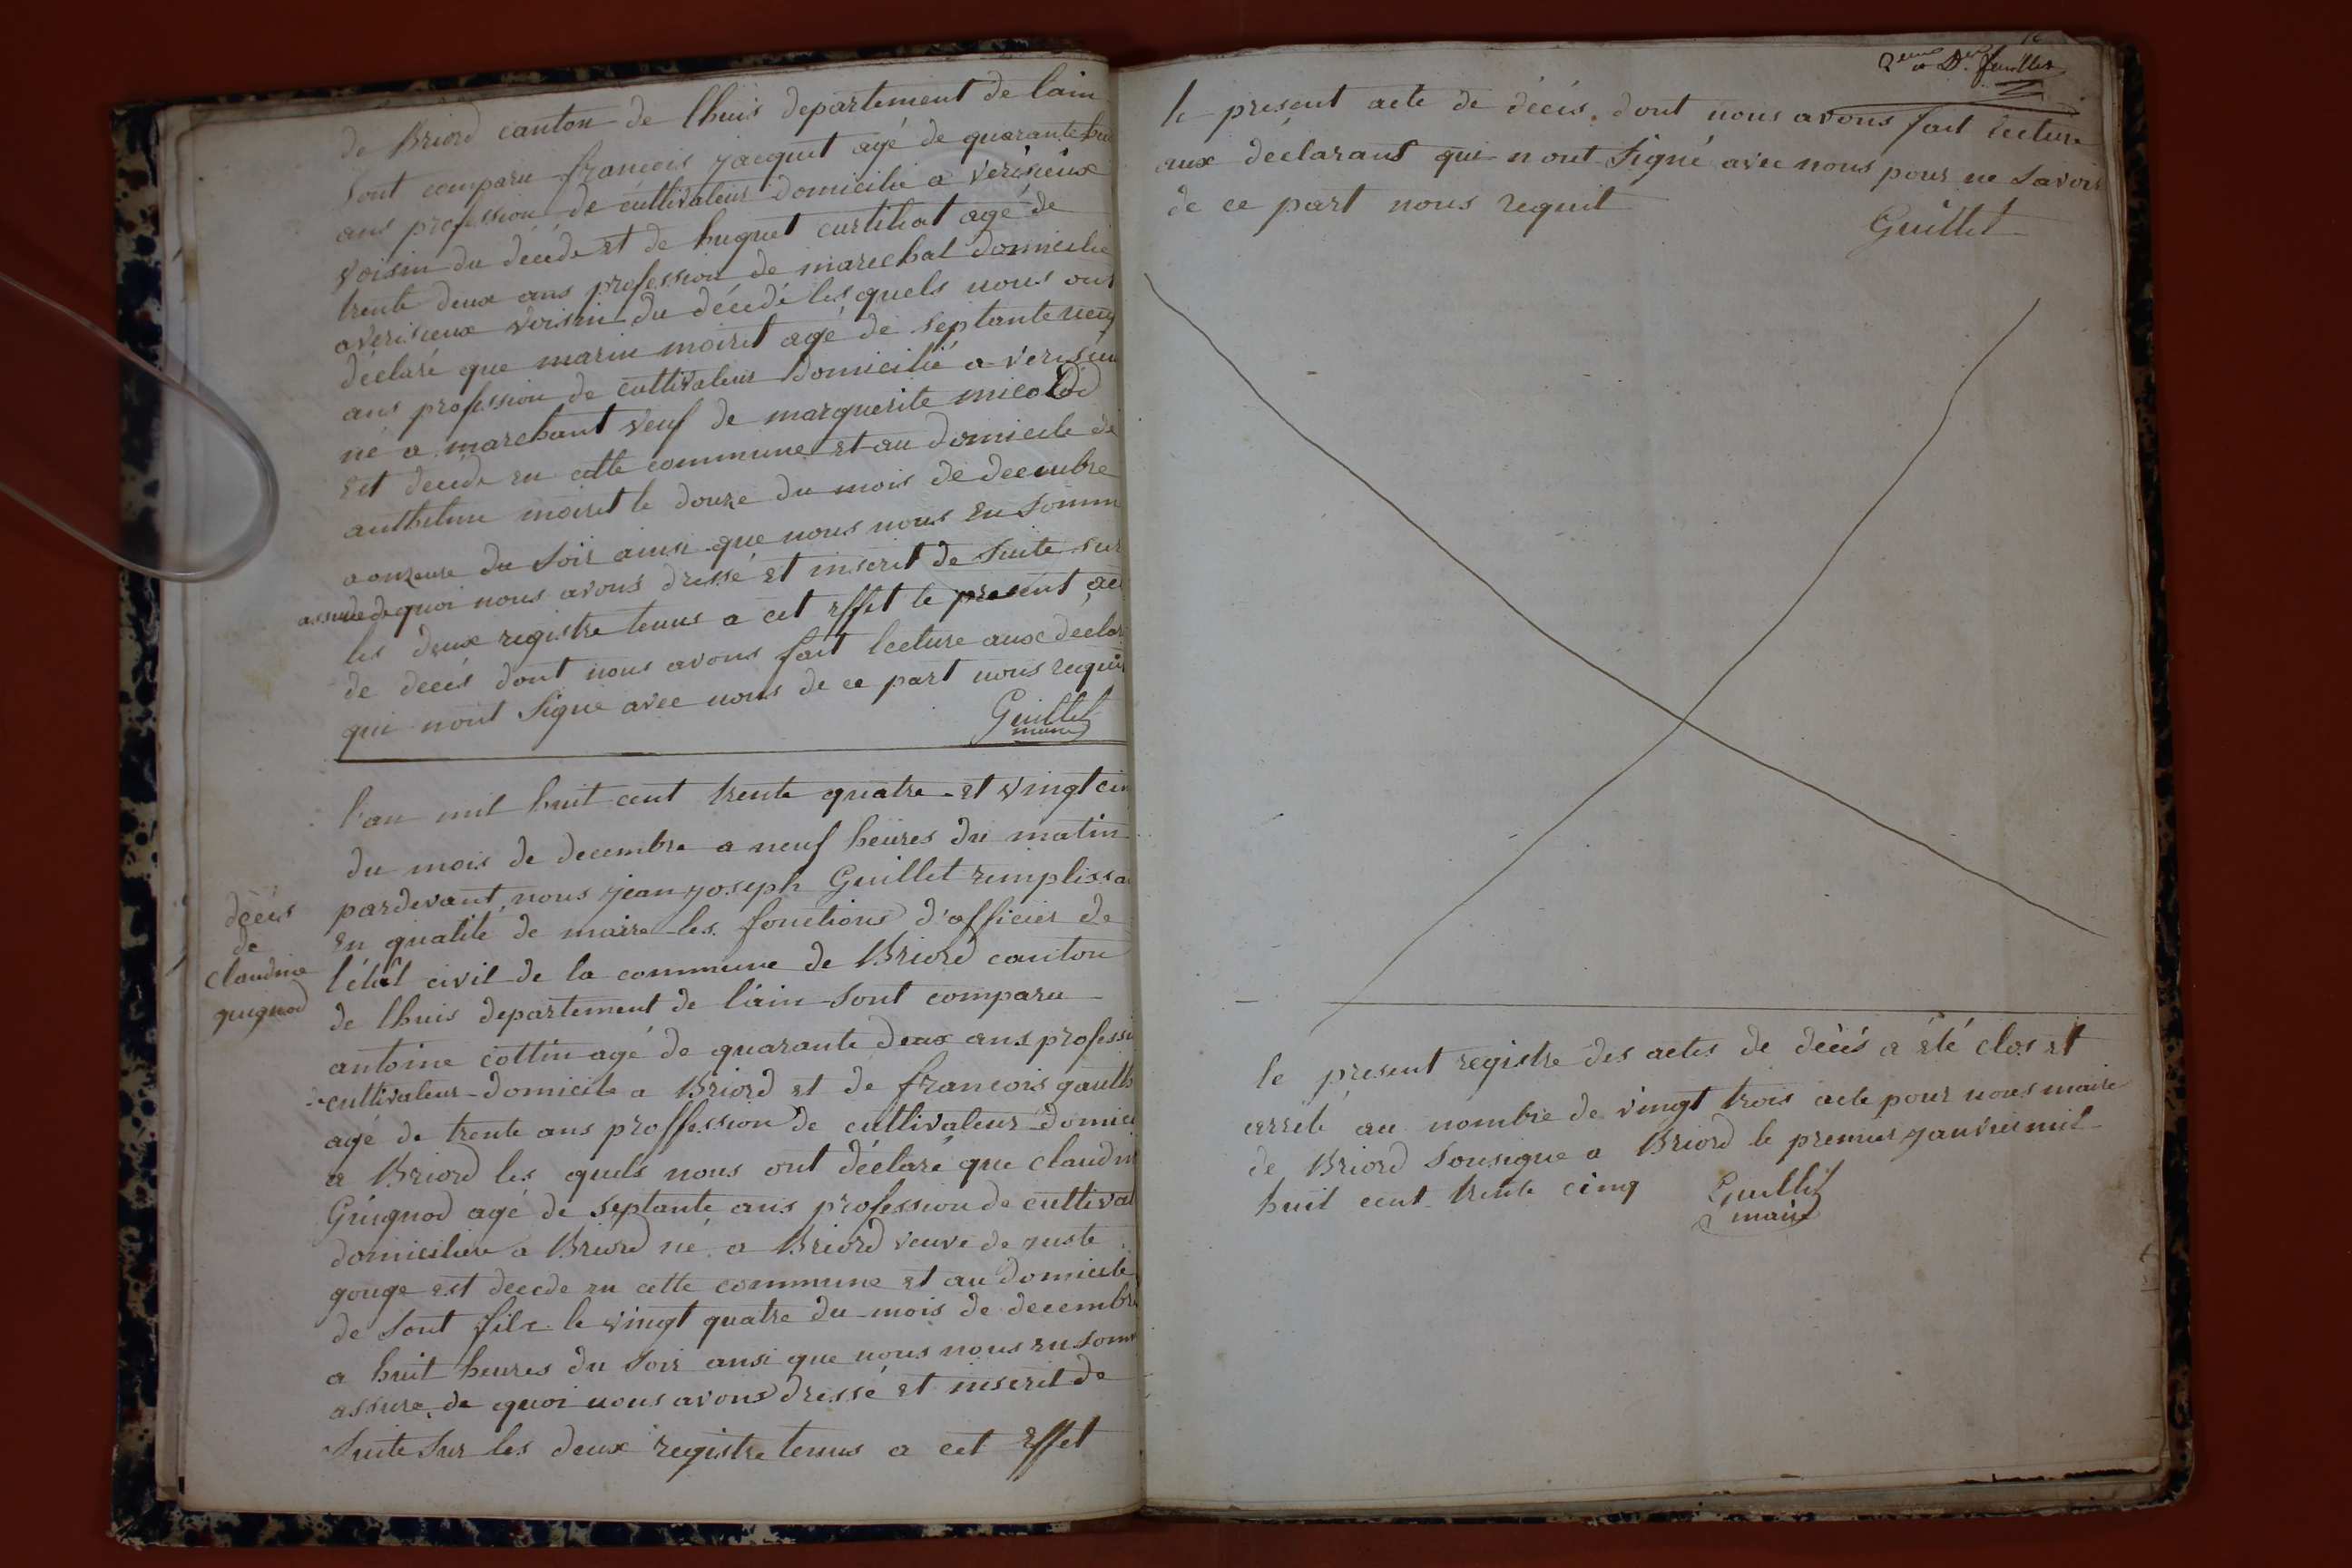 de Briord canton de lhuis departement de lain
sont comparu francois jacquet agé de quarante hui
ans profession de cultivateur domicilie a verisieux
voisin du décédé et de huguet curtilat agé de
trente deux ans profession de marechal domicilie
a verisieux voisin du décédé les quels nous ont
déclaré que marin moiret agé de septante neuf
ans profession de cultivateur domicilié a verisieu
né a marchant veuf de marguerite micolod
est decede en cette commune et au domicile de
anthelme moiret le douze du mois de decembre
a onzeure du soir ainsi que nous nous en somm
assuré de quoi nous avons dressé et inscrit de suite sur
les deux registre tenus a cet effet le present ac
de decés dont nous avons fait lecture aux declar
qui nont signe avec nous de ce part nous requit
Guillet
maire
l'an mil huit cent trente quatre et vingt cin
du mois de decembre a neuf heures du matin
pardevant nous jean joseph Guillet remplissa
en qualité de maire les fonctions d'officier de
l'étât civil de la commune de Briord canton
de lhuis departement de lain sont comparu
antoine cottin agé de quarante deux ans professi
cultivateur domicile a Briord et de francois gauth
agé de trente ans proffession de cultivateur domici
a Briord les quels nous ont déclaré que claudin
Guignod agé de septante ans profession de cultivat
domiciliere a Briord né a Briord veuve de juste
gouge est decede en cette commune et au domicile
de sont fils le vingt quatre du mois de decembre
a huit heures du soir ansi que nous nous en somm
assure de quoi nous avons dressé et inscrit de
suite sur les deux registre tenus a cet effet
décès
de
claudine
guignod
2eme et Der feuillet
le present acte de décés dont nous avons fait lecture
aux déclarant qui n ont signé avec nous pour ne savoir
de ce part nous requit
Guillet
le present registre des actes de décés a été clos et
arrêté au nombre de vingt trois acte pour nous maire
de Briord sousigne a Briord le premier janvier mil
huit cent trente cinq
Guillet
maire